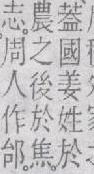 蓋國姜姓於
農之後於焦
志。周人作邰。